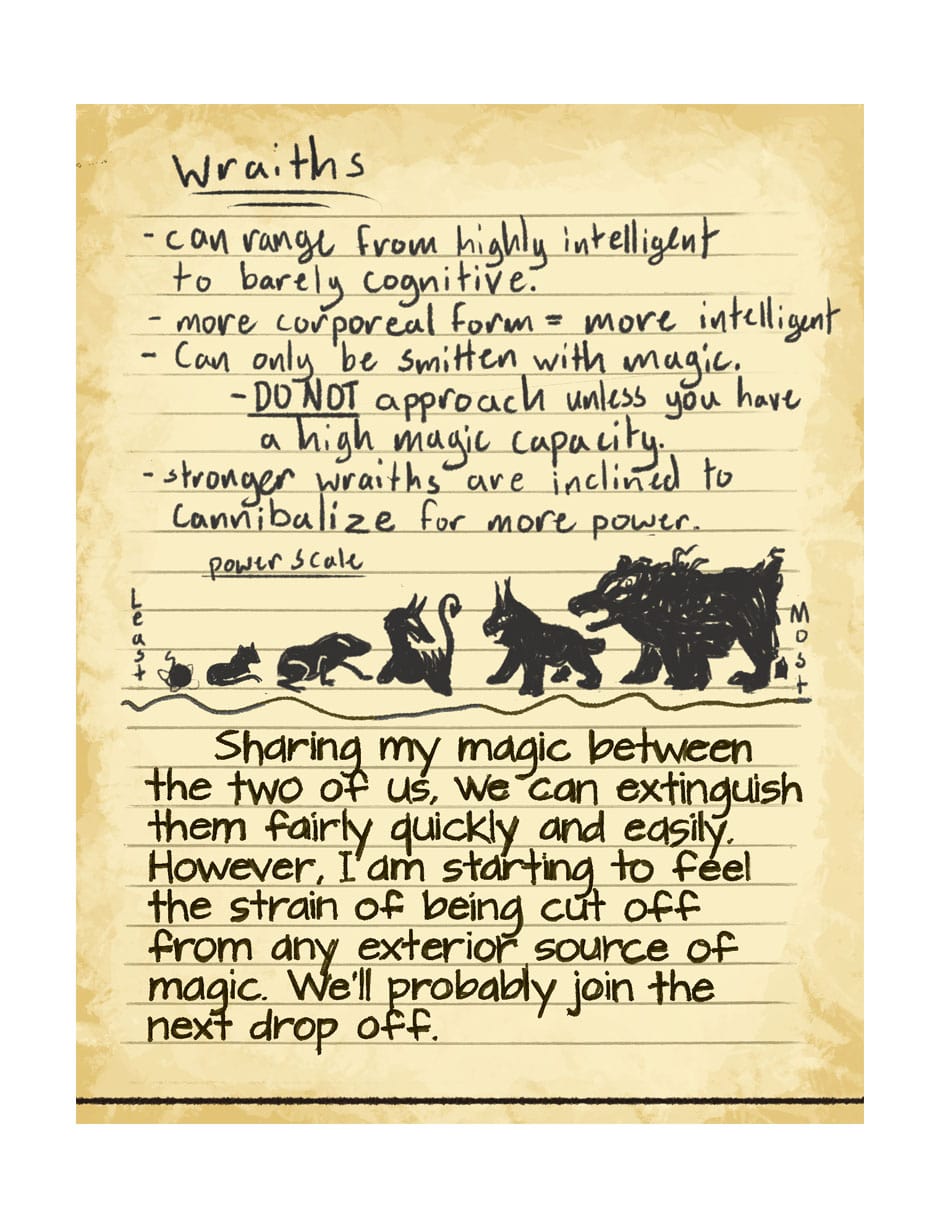 Wraiths
- can range from highly intelligent
to barely cognitive.
- more corporeal form = more intelligent
- Can only be smitten with magic.
- DO NOT approach unless you have
a high magic capacity.
- stronger wraiths are inclined to
cannibalize for more power.
power scale
Least
Most
Sharing my magic between
the two of us, we can extinguish
them fairly quickly and easily.
However, I am starting to feel
the strain of being cut off
from any exterior source of
magic. We'll probably join the
next drop off.